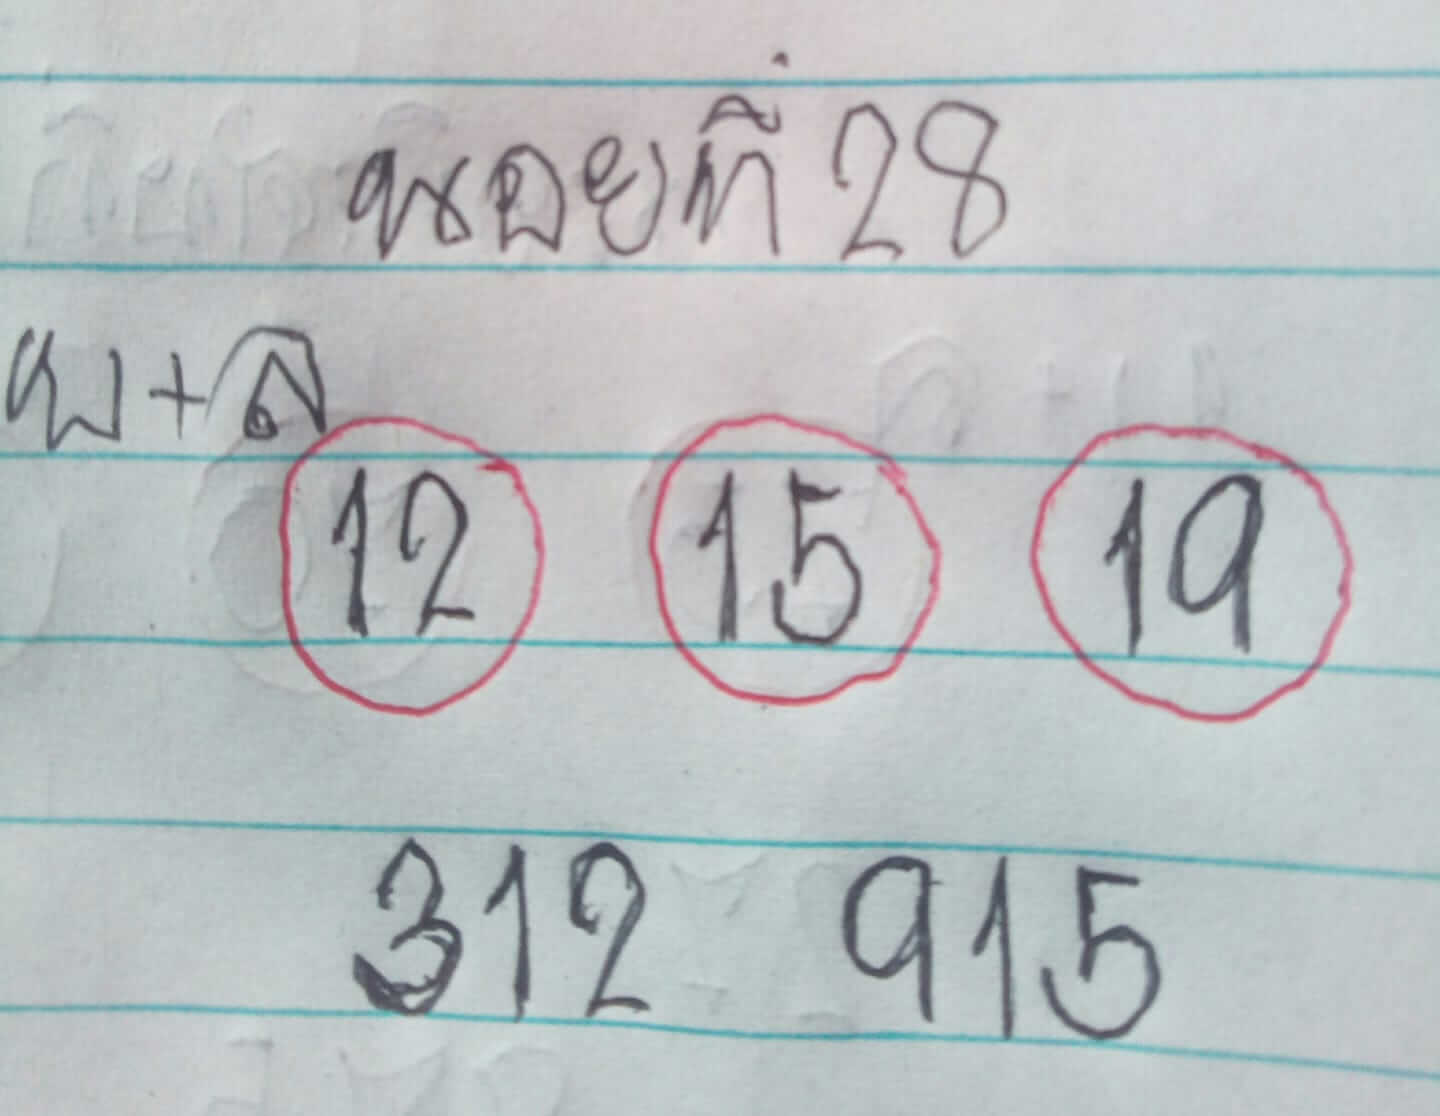 นอยที่ 28
บ+ล
12 15 19
312 915